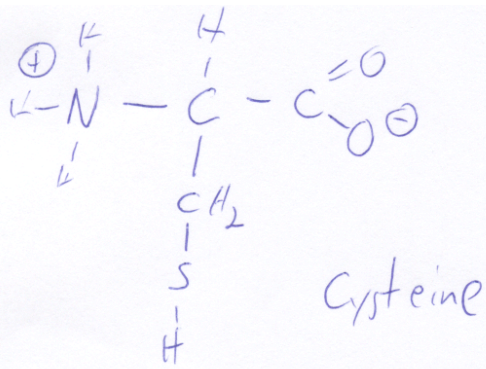 H H
⊕ O
H N C C
O ⊖
H
CH2
S
Cysteine
H